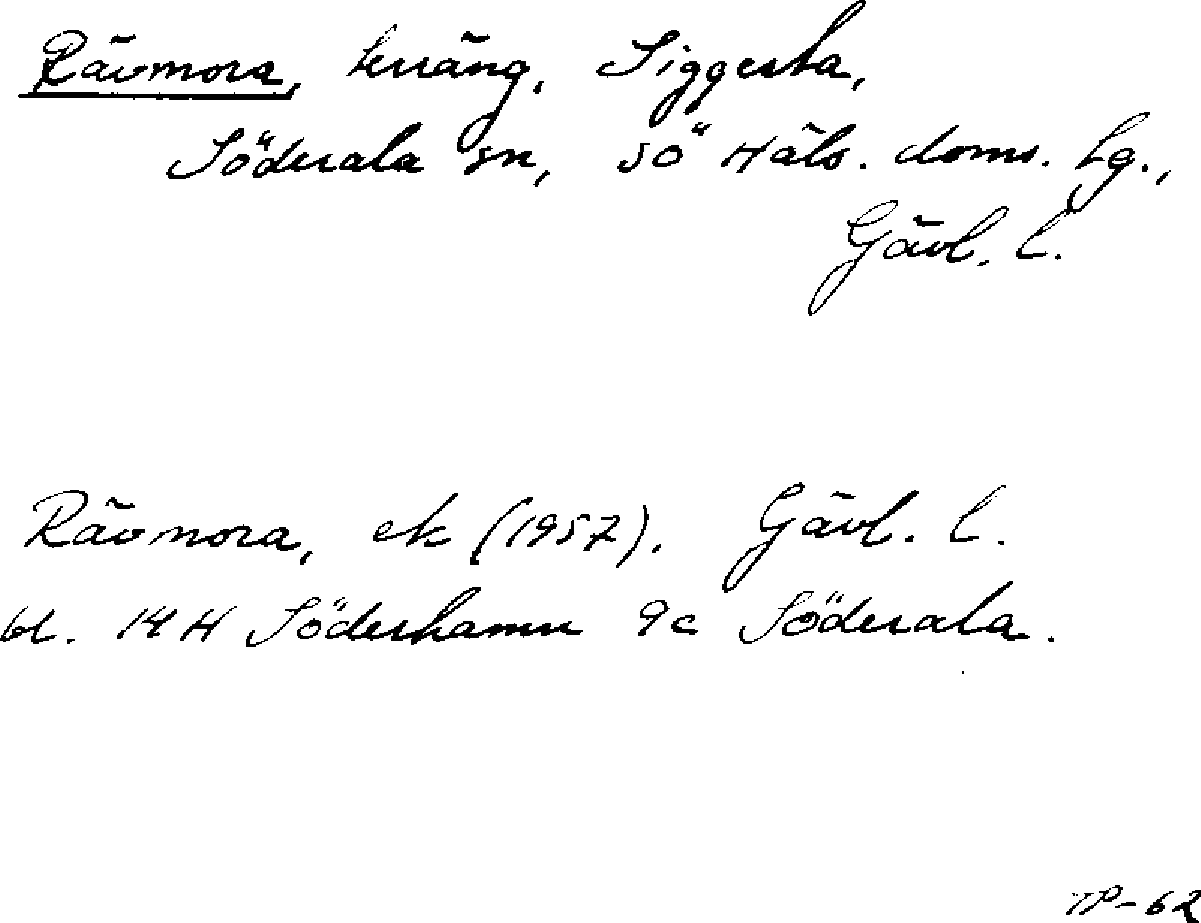 Rävmora, terräng, Siggesta,
Söderala sn, SÖ Häls. doms. Lg.,
Gävl. l.
Rävmora, ek (1957). Gävl. l.
bl. 14H Söderhamn 9c Söderala.
TP-62